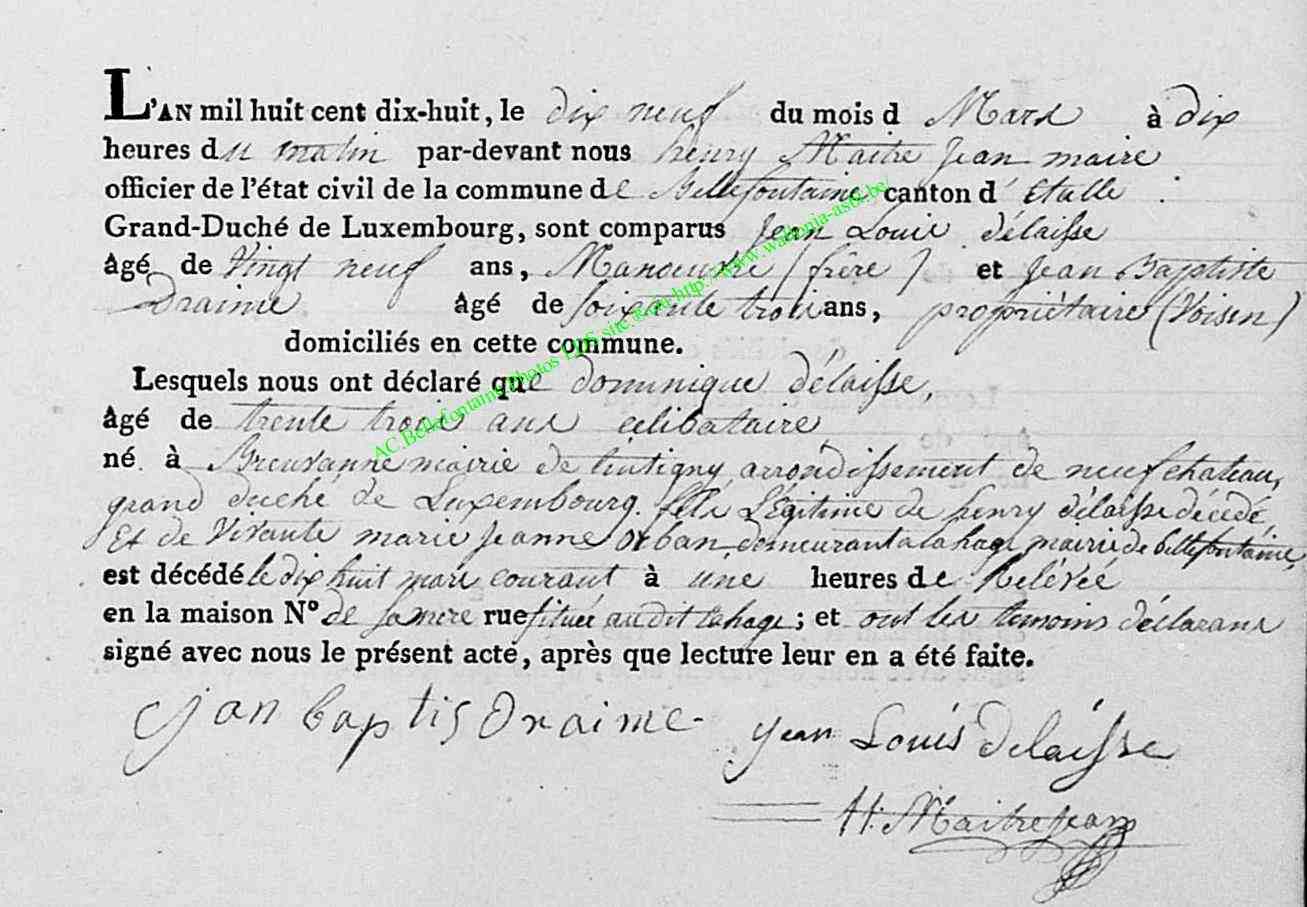 L'AN mil huit cent dix-huit, le dix neuf du mois d Mars à dix
heures du matin par-devant nous henry Maitre Jean maire
officier de l'état civil de la commune de Bellefontaine canton d'Etalle :
Grand-Duché de Luxembourg, sont comparus Jean Louis délaisse
âgé de Vingt neuf ans, Manoeuvre (frère) et Jean Baptiste
Draime âgé de soixante trois ans, propriétaire (Voisin)
domiciliés en cette commune.
Lesquels nous ont déclaré que dominique délaisse,
âgé de trente trois ans célibataire
né à Breuvanne mairie de tintigny arrondissement de neufchateau,
grand duché de Luxembourg. fils Légitime de henry délaisse décédé,
Et de Vivante marie Jeanne Orban demeurant a lahage mairie de bellefontaine,
est décédé le dix huit mars courant à une heures de Relévée
en la maison N° de sa mere rue située audit lahage ; et ont les temoins déclarans
signé avec nous le présent acte, après que lecture leur en a été faite.
jan baptis Draime
Jean Louis Delaisse
H. MaitreJean
AC Bellefontaine Photos EPS site http://www.wallonia-asbl.be/